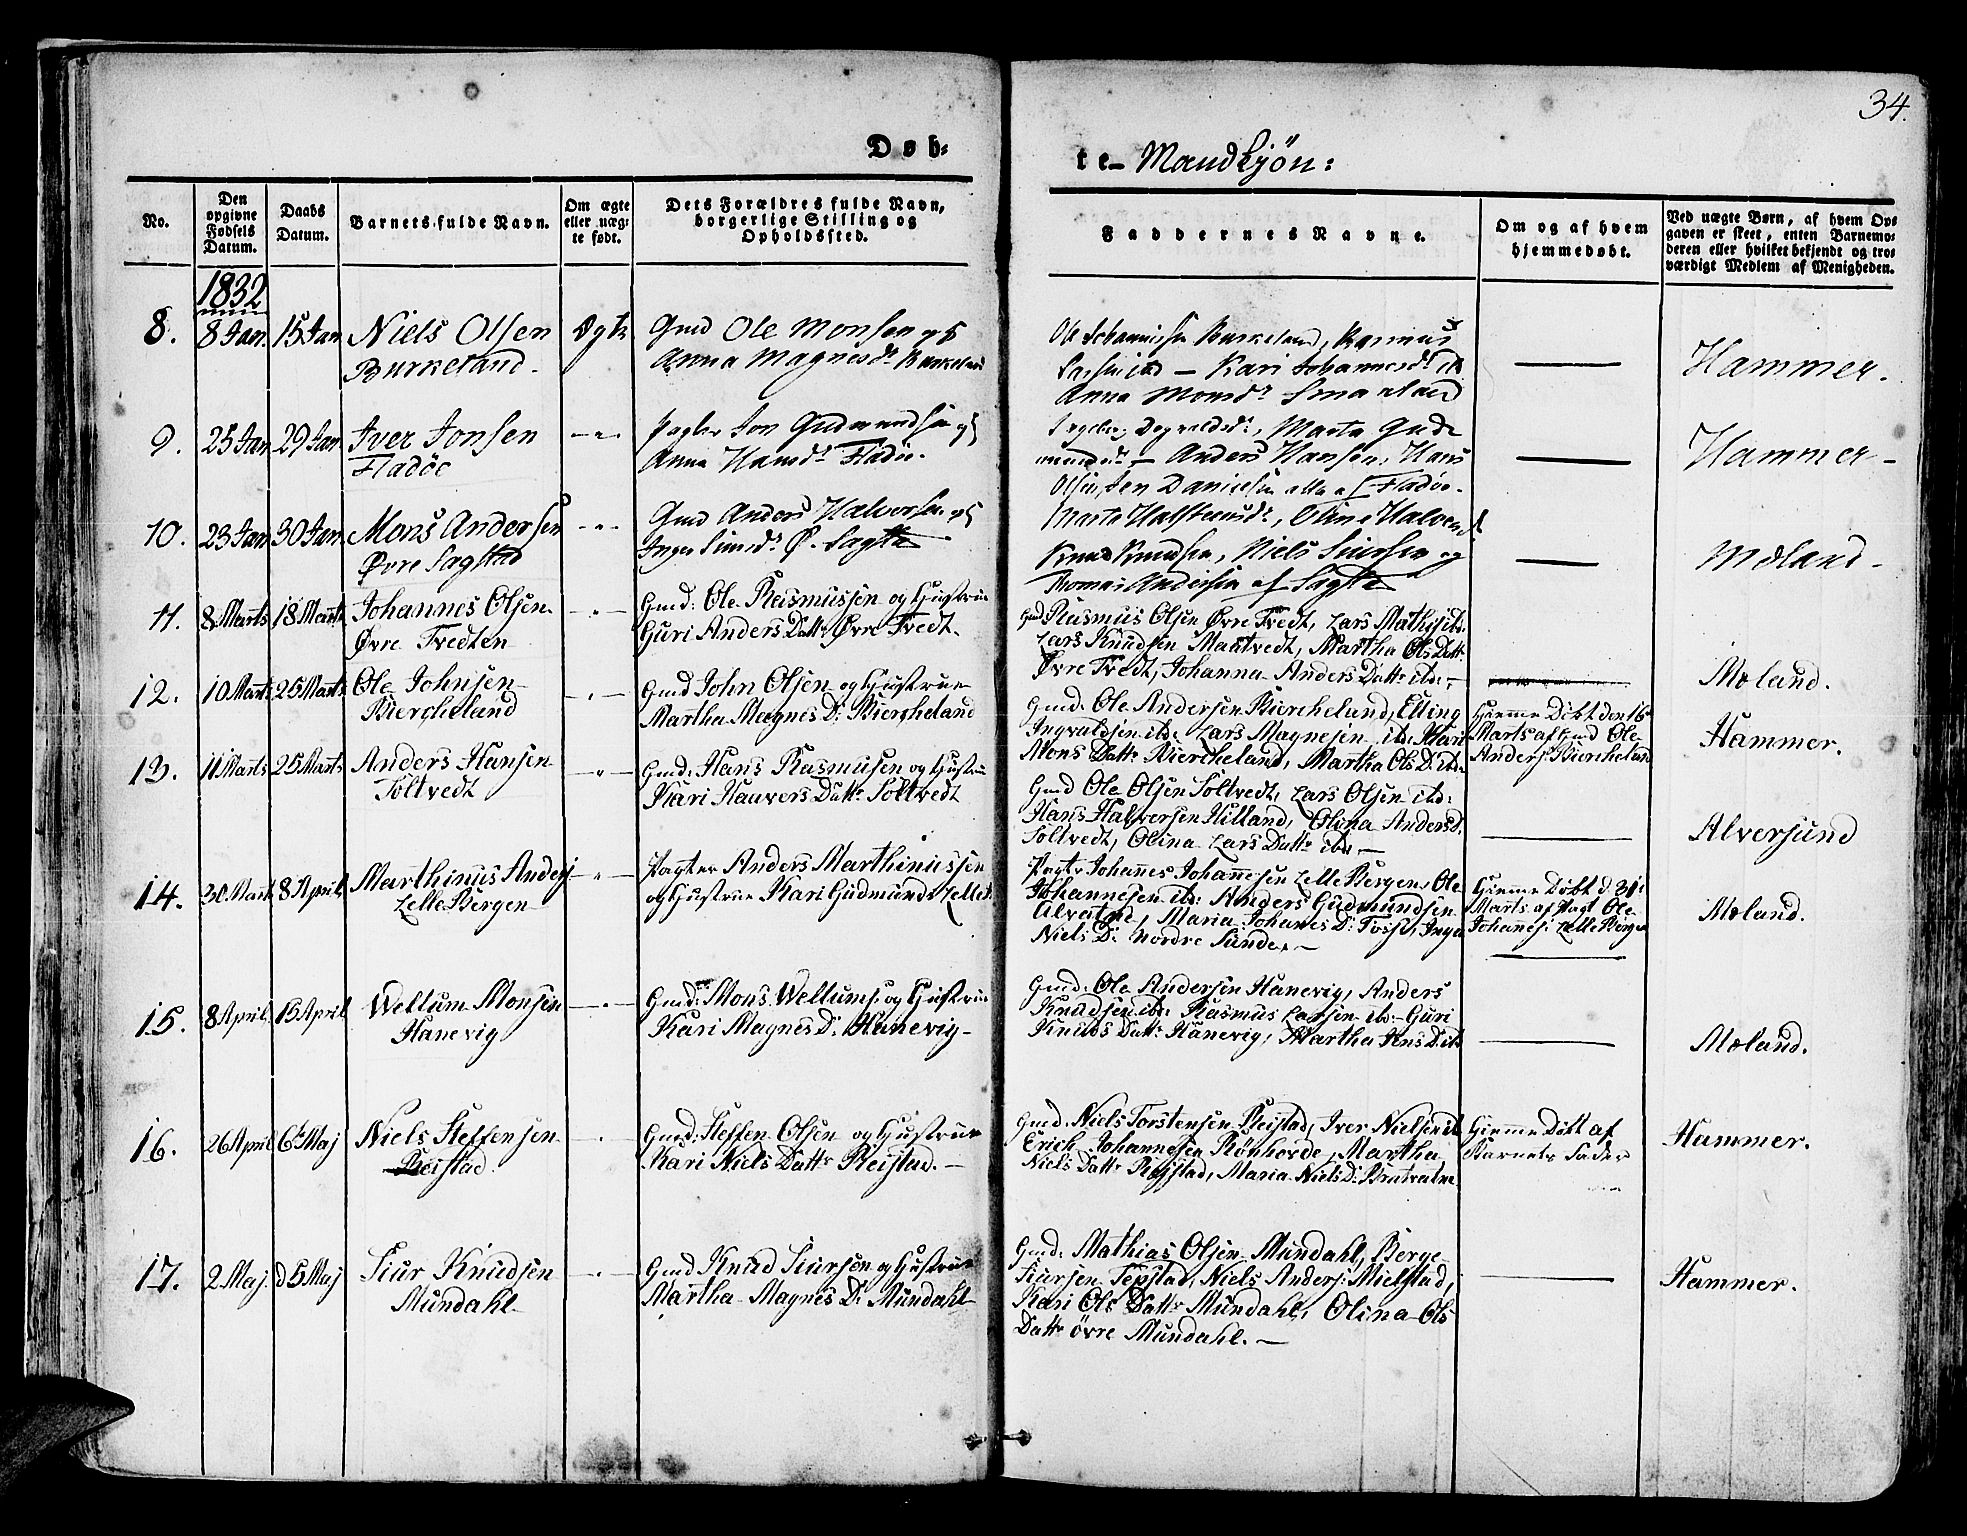 34.
Døb-
te- Mandkjøn:
No.
Den opgivne Fødsels Datum.
Daabs Datum.
Barnets fulde Navn.
Om ægte eller uæg-
te født.
Dets Forældres fulde Navn,
borgerlige Stilling og
Opholdssted.
Faddernes Navne.
Om og af hvem
hjemmedøbt.
Ved uægte Børn, af hvem Op-
gaven er skeet, enten Barnemo-
deren eller hvilket bekjendt og tro-
værdigt Medlem af Menigheden.
1832
8. 8 Jan. 15 Jan Niels Olsen
Burkeland.
Ægte
Gmd Ole Monsen og
Anna Magnesdr Burkeland
Ole Johannessen Burkeland, Rasmus
Larsen ibd - Kari Johannesdr ib
Anna Monsdr Smaaland
Hammer.
9. 25 Jan 29 Jan Iver Jonsen
Fladøe
Jon Gudmundsen og
Anna Hansdr Fladøe.
Marta Gude
mundsdr - Anders Hansen, Hans
Olsen, Jen Danielsen alle af Fladøe.
Hammer -
10. 23 Jan 30 Jan Mons Andersen
Øvre Sagstad
Gmd Anders Halversen og
Inger Simsdr Ø. Sagsta
Marta Halsteensdr, Olina Halversd
Knud Knudsen, Niels Siursen og
Thomas Andersen af Sagsta
Mæland -
11. 8 Marts 18 Marts Johannes Olsen
Øvre Tvedten
Gmd: Ole Rasmussen og Hustrue
Guri Anders Dattr Øvre Tvedt.
Gmd: Rasmus Olsen Øvre Tvedt, Lars Mathis: ibd:
Lars Knudsen Mantvedt, Martha Ols Dattr
Øvre Tvedt, Johanna Anders Dattr ibd: -
Mæland.
12. 10 Marts 25 Marts Ole Johnsen
Biercheland
Gmd John Olsen og Hustrue
Martha Magnes D: Biercheland
Gmd: Ole Andersen Biercheland, Elling
Ingvaldsen ibd: Lars Magnesen ibd: Mari
Mons Dattr Biercheland, Martha Ols D: ibd:
Hjemme Døbt den 16de
Marts af Gmd Ole
Anders: Biercheland
Hammer.
13. 11 Marts 25 Marts Anders Hansen
Toltvedt
Gmd: Hans Rasmusen og Hustrue
Kari Hauvers Dattr Toltvedt
Gmd Ole Olsen Toltvedt, Lars Olsen ibd:
Hans Halversen Hilland, Olona Anders D.
Toltvedt, Olina Lars Dattr ibd: -
Alversund
14. 30 Marts 8 April Marthinus Anders
LelleBergen
Pagter Anders Marthinussen
og Hustrue Kari Gudmunds D
Pagtr Johannes Johannesen LelleBergen, Ole
Johannesen ibd: Anders Gudmundsen
Alverstrøm, Maria Johanes D: Fosse, Inga
Niels D: Nordre Sunde, -
Hjemme Døbt d 31te
Marts af Pagt Ole
Johanes: LelleBergen
Mæland.
15. 8 April. 15 April Wellum Monsen
Hanevig
Gmd: Mons Wellums: og Hustrue
Kari Magnes D: Hanevig -
Gmd: Ole Andersen Hanevig, Anders
Knudsen ibd: Rasmus Larsen ibd: - Guri
Knuds Dattr Hanevig, Martha Jens D: ibd
Mæland.
16. 26 April 6te Maj Niels Steffensen
Reistad.
Gmd: Steffen Olsen og Hustrue
Kari Niels Dattr Reistad. -
Gmd. Niels Torstensen Reistad, Iver Nielsen ibd
Erich Johannesen Rønhovde, Martha
Niels Dattr Reistad, Maria Niels D:
Hjemme Døbt af
Barnets Fader
Hammer.
17. 2 Maj. d 5 Maj Siur Knudsen
Mundahl
Gmd Knud Siursen og Hustrue
Martha Magnes D: Mundahl
Gmd: Mathias Olsen Mundahl, Berge
Siursen Tepstad, Niels Anders: Mielstad,
Kari Ols Dattr Mundahl, Olina Ols
Dattr øvre Mundahl. -
Hammer.